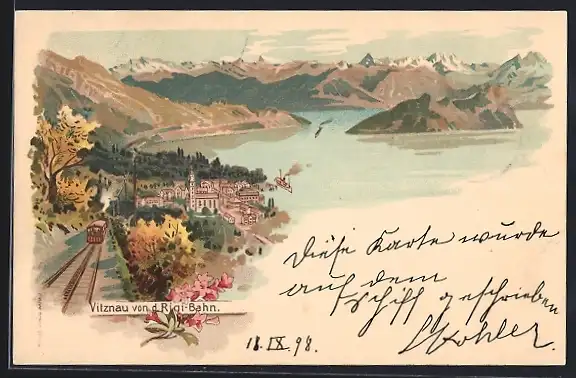 Vitznau von d. Rigi-Bahn.
Diese Karte wurde
auf dem
Schiff geschrieben
Kohler.
18.IX.98.